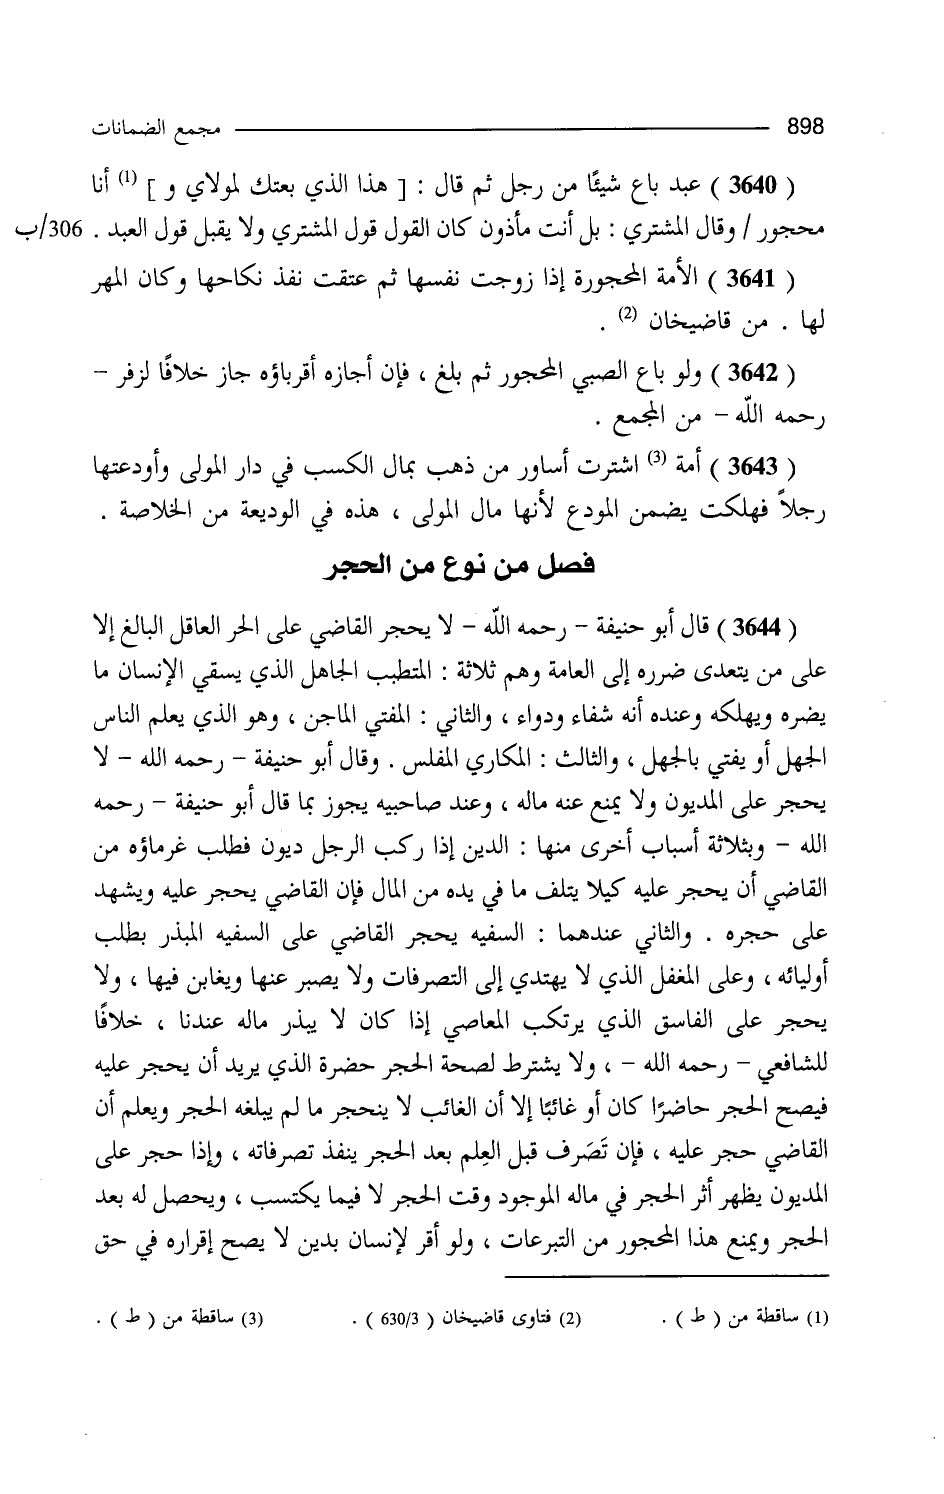 898 مجمع الضمانات
( 3640 ) عبد باع شيئًا من رجل ثم قال : [ هذا الذي بعتك لمولاي و ] (1) أنا
محجور / وقال المشتري : بل أنت مأذون كان القول قول المشتري ولا يقبل قول العبد . 306/ب
( 3641 ) الأمة المحجورة إذا زوجت نفسها ثم عتقت نفذ نكاحها وكان المهر
لها . من قاضيخان (2) .
( 3642 ) ولو باع الصبي المحجور ثم بلغ ، فإن أجازه أقرباؤه جاز خلافًا لزفر -
رحمه اللَّه - من المجمع .
( 3643 ) أمة (3) اشترت أساور من ذهب بمال الكسب في دار المولى وأودعتها
رجلاً فهلكت يضمن المودع لأنها مال المولى ، هذه في الوديعة من الخلاصة .
فصل من نوع من الحجر
( 3644 ) قال أبو حنيفة - رحمه اللَّه - لا يحجر القاضي على الحر العاقل البالغ إلا
على من يتعدى ضرره إلى العامة وهم ثلاثة : المتطبب الجاهل الذي يسقي الإنسان ما
يضره ويهلكه وعنده أنه شفاء ودواء ، والثاني : المفتي الماجن ، وهو الذي يعلم الناس
الجهل أو يفتي بالجهل ، والثالث : المكاري المفلس . وقال أبو حنيفة - رحمه الله - لا
يحجر على المديون ولا يمنع عنه ماله ، وعند صاحبيه يجوز بما قال أبو حنيفة - رحمه
الله - وبثلاثة أسباب أخرى منها : الدين إذا ركب الرجل ديون فطلب غرماؤه من
القاضي أن يحجر عليه كيلا يتلف ما في يده من المال فإن القاضي يحجر عليه ويشهد
على حجره . والثاني عندهما : السفيه يحجر القاضي على السفيه المبذر بطلب
أوليائه ، وعلى المغفل الذي لا يهتدي إلى التصرفات ولا يصبر عنها ويغابن فيها ، ولا
يحجر على الفاسق الذي يرتكب المعاصي إذا كان لا يبذر ماله عندنا ، خلافًا
للشافعي - رحمه الله - ، ولا يشترط لصحة الحجر حضرة الذي يريد أن يحجر عليه
فيصح الحجر حاضرًا كان أو غائبًا إلا أن الغائب لا ينحجر ما لم يبلغه الحجر ويعلم أن
القاضي حجر عليه ، فإن تَصَرف قبل العِلم بعد الحجر ينفذ تصرفاته ، وإذا حجر على
المديون يظهر أثر الحجر في ماله الموجود وقت الحجر لا فيما يكتسب ، ويحصل له بعد
الحجر ويمنع هذا المحجور من التبرعات ، ولو أقر لإنسان بدين لا يصح إقراره في حق
(1) ساقطة من ( ط ) . (2) فتاوى قاضيخان ( 630/3 ) . (3) ساقطة من ( ط ) .